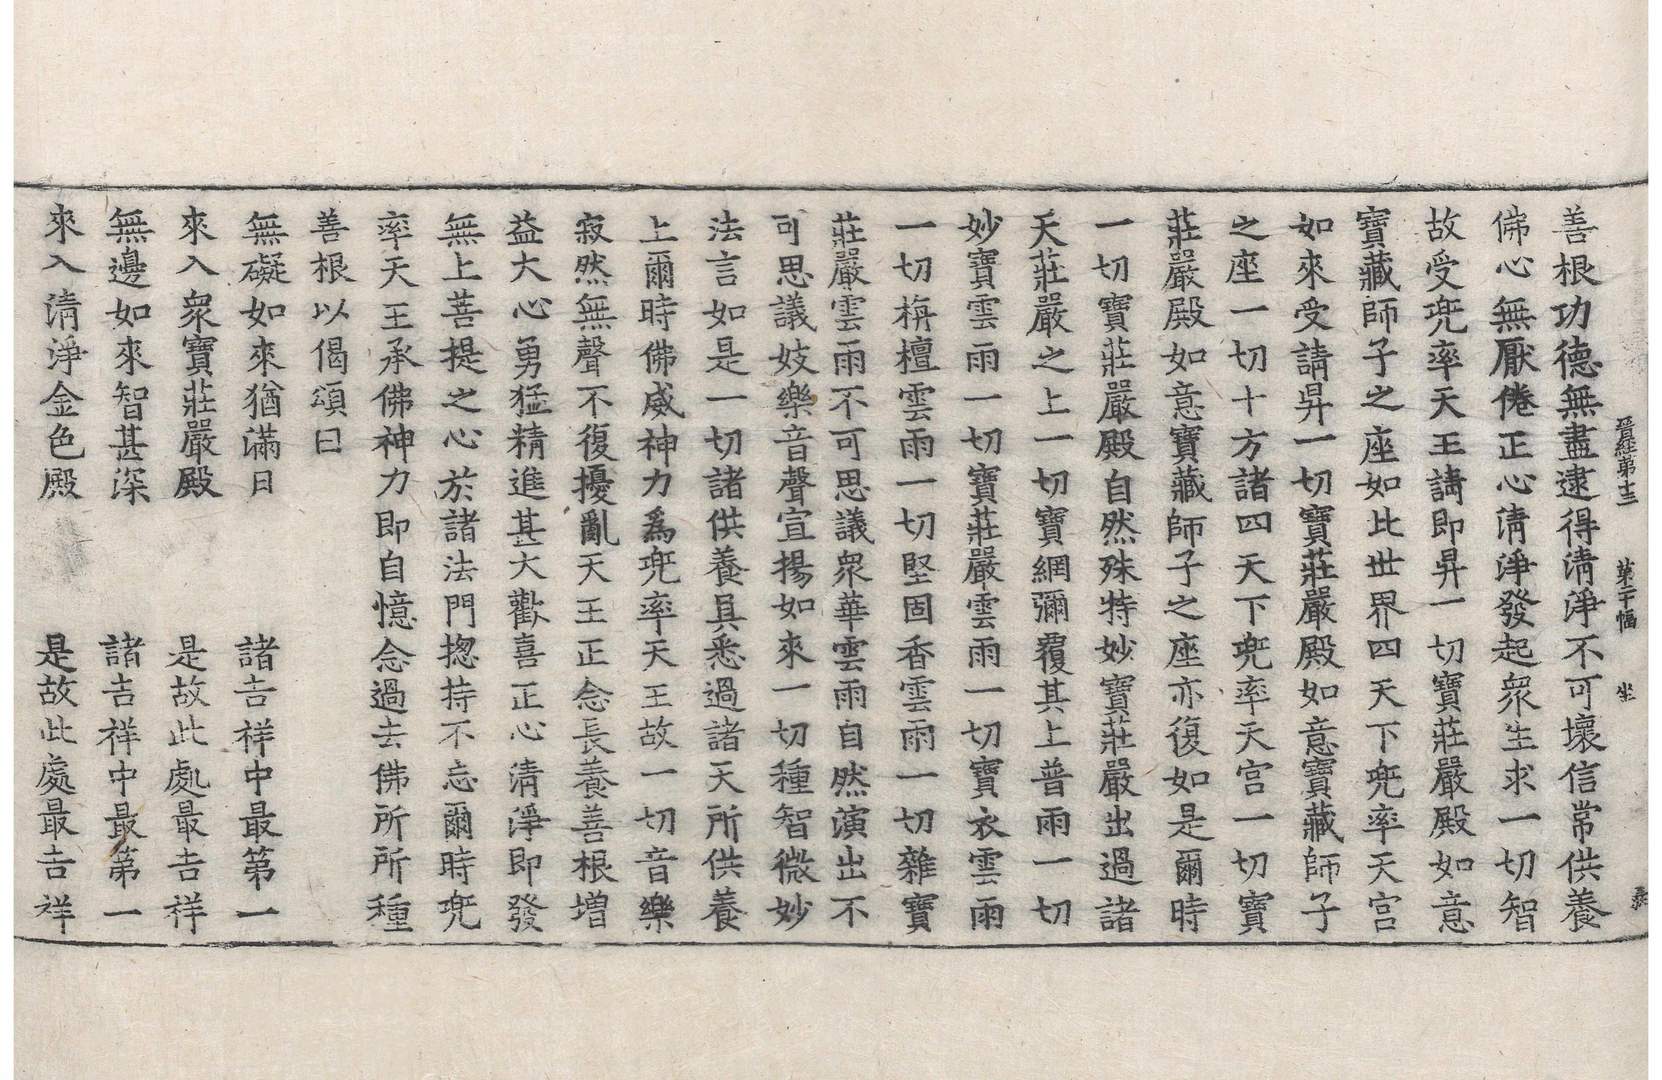 晉經第十三 第二十幅 坐
善根功德無盡逮得清淨不可壞信常供養
佛心無厭倦正心清淨發起衆生求一切智
故受兜率天王請即昇一切寶莊嚴殿如意
寶藏師子之座如此世界四天下兜率天宮
如來受請昇一切寶莊嚴殿如意寶藏師子
之座一切十方諸四天下兜率天宮一切寶
莊嚴殿如意寶藏師子之座亦復如是爾時
一切寶莊嚴殿自然殊特妙寶莊嚴出過諸
天莊嚴之上一切寶網彌覆其上普雨一切
妙寶雲雨一切寶莊嚴雲雨一切寶衣雲雨
一切栴檀雲雨一切堅固香雲雨一切雜寶
莊嚴雲雨不可思議衆華雲雨自然演出不
可思議妓樂音聲宣揚如來一切種智微妙
法言如是一切諸供養具悉過諸天所供養
上爾時佛威神力為兜率天王故一切音樂
寂然無聲不復擾亂天王正念長養善根增
益大心勇猛精進甚大歡喜正心清淨即發
無上菩提之心於諸法門揔持不忘爾時兜
率天王承佛神力即自憶念過去佛所所種
善根以偈頌曰
無礙如來猶滿月 諸吉祥中最第一
來入衆寶莊嚴殿 是故此處最吉祥
無邊如來智甚深 諸吉祥中最第一
來入清淨金色殿 是故此處最吉祥